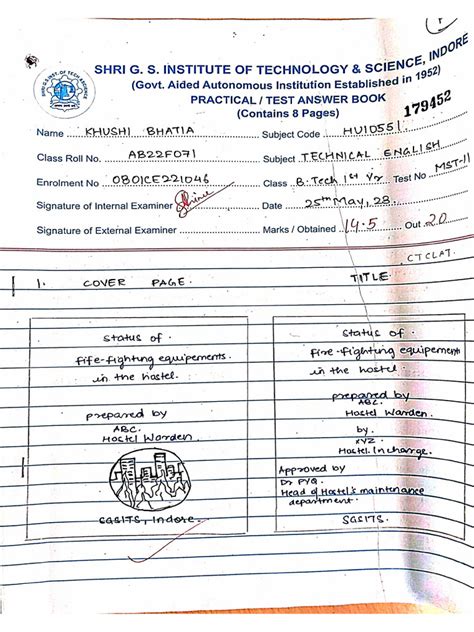 SHRI G. S. INSTITUTE OF TECHNOLOGY & SCIENCE, INDORE
(Govt. Aided Autonomous Institution Established in 1952)
PRACTICAL / TEST ANSWER BOOK
(Contains 8 Pages)
179452
Name KHUSHI BHATIA Subject Code HU10551
Class Roll No. AB22F071 Subject TECHNICAL ENGLISH
Enrolment No 0801CE221046 Class B.Tech 1st Yr Test No MST-II
Signature of Internal Examiner Date 25th May, 28.
Signature of External Examiner Marks / Obtained 14.5 Out 20
CTCLAT.
1. COVER PAGE. TITLE.
status of.
fife-fighting equipements.
in the hostel.
prepared by
ABC.
Hostel Warden
SGSITS, Indore.
status of.
fire-fighting equipement
in the hostel
prepared by
ABC.
Hostel Warden.
by.
XYZ.
Hostel Incharge.
Approved by
Dr PYQ.
Head of Hostel's maintenance
department.
SGSITS.